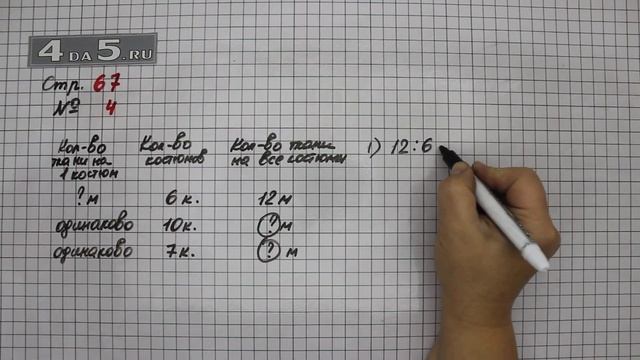 4DA5.RU
Стр. 67
№ 4
Кол-во ткани на 1 костюм
Кол-во костюмов
Кол-во ткани на все костюмы
1) 12:6
? м 6 к. 12 м
одинаково 10 к. ? м
одинаково 7 к. ? м